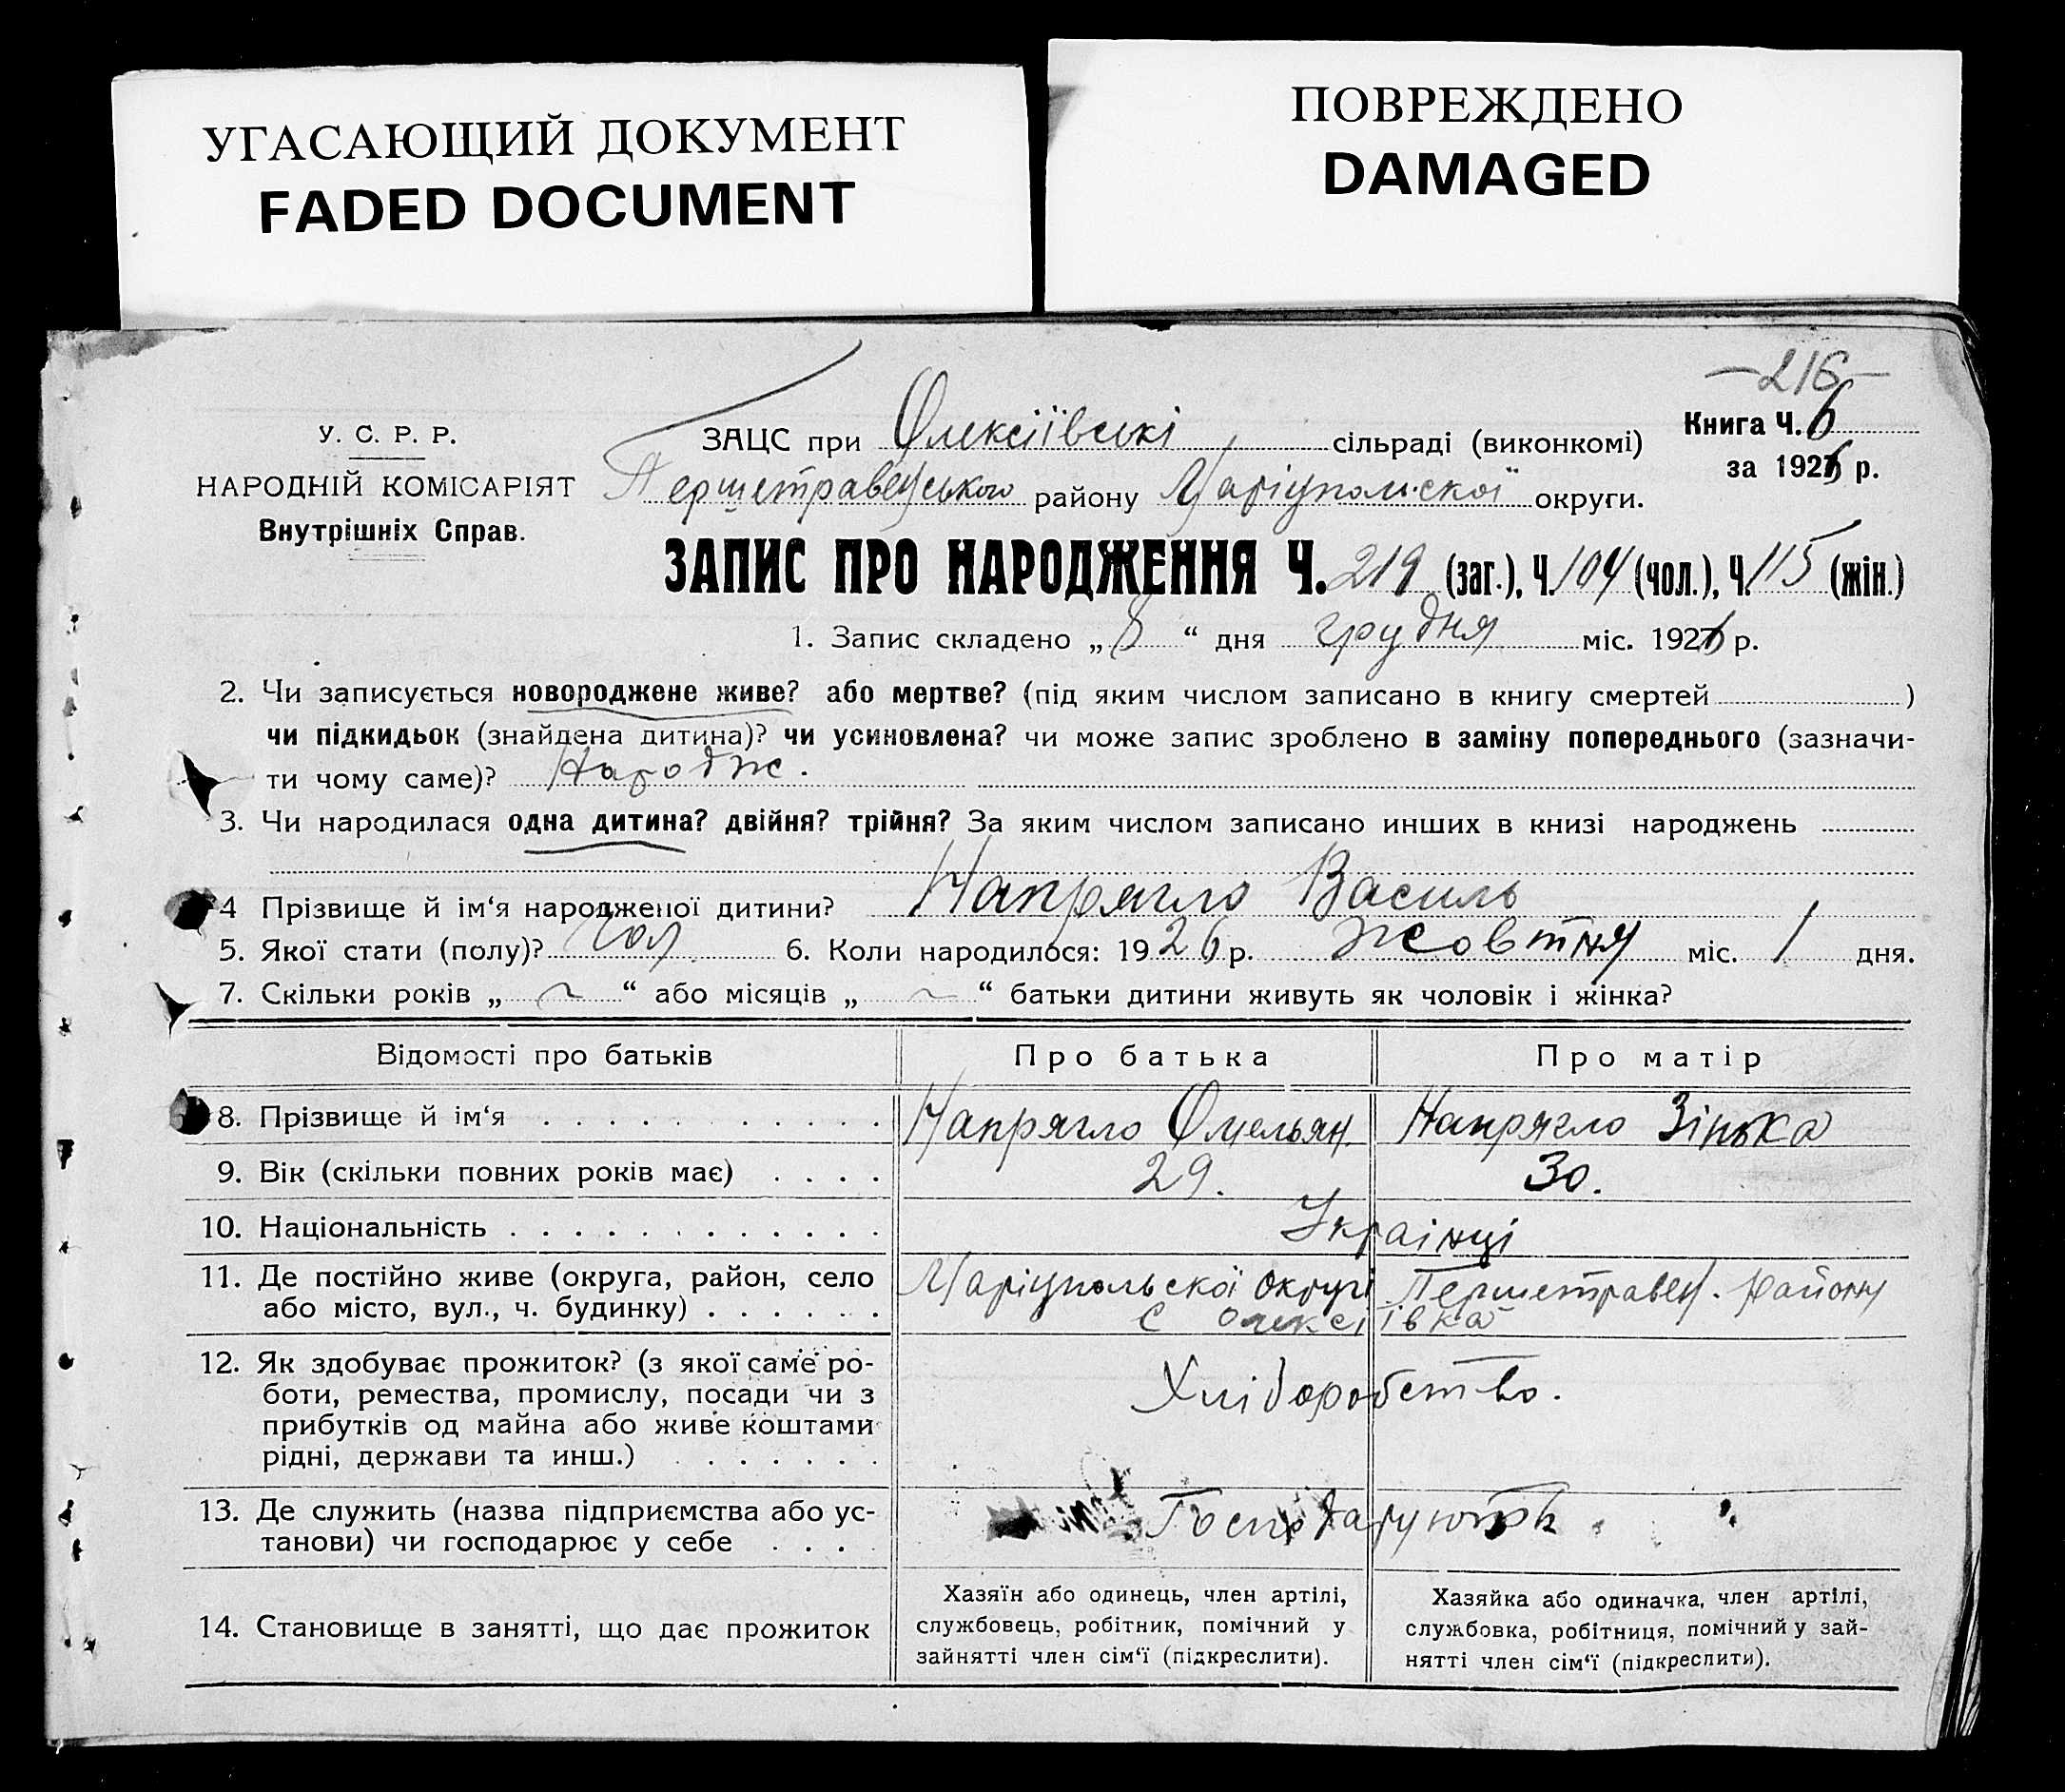 УГАСАЮЩИЙ ДОКУМЕНТ
FADED DOCUMENT
ПОВРЕЖДЕНО
DAMAGED
—216—
У. С. Р. Р.
НАРОДНІЙ КОМІСАРІЯТ
Внутрішніх Справ.
ЗАЦС при Олексіївські сільраді (виконкомі)
Книга Ч. 6
Першетравенського району Маріупольскої округи.
за 1926 р.
ЗАПИС ПРО НАРОДЖЕННЯ Ч. 219 (заг.), Ч. 104 (чол.), Ч. 115 (жін.)
1. Запис складено „ 8 “ дня грудня міс. 1926 р.
2. Чи записується новороджене живе? або мертве? (під яким числом записано в книгу смертей )
чи підкидьок (знайдена дитина)? чи усиновлена? чи може запис зроблено в заміну попереднього (зазначи-
ти чому саме)? Народж.
3. Чи народилася одна дитина? двійня? трійня? За яким числом записано инших в книзі народжень
4 Прізвище й ім‘я народженої дитини? Напрягло Василь
5. Якої стати (полу)? чол. 6. Коли народилося: 1926 р. Жовтня міс. 1 дня.
7. Скільки років „ “ або місяців „ “ батьки дитини живуть як чоловік і жінка?
Відомості про батьків Про батька Про матір
8. Прізвище й ім‘я Напрягло Омельян. Напрягло Зінька
9. Вік (скільки повних років має) 29. 30.
10. Національність Українці
11. Де постійно живе (округа, район, село
або місто, вул., ч. будинку)
Маріупольскої округі Першетравен. району
с Олексіівка
12. Як здобуває прожиток? (з якої саме ро-
боти, ремества, промислу, посади чи з
прибутків од майна або живе коштами
рідні, держави та инш.)
Хліборобство.
13. Де служить (назва підприємства або ус-
танови) чи господарює у себе
Господарують
14. Становище в занятті, що дає прожиток
Хазяїн або одинець, член артілі,
службовець, робітник, помічний у
зайнятті член сім‘ї (підкреслити).
Хазяйка або одиначка, член артілі,
службовка, робітниця, помічний у зай-
нятті член сім‘ї (підкреслити).